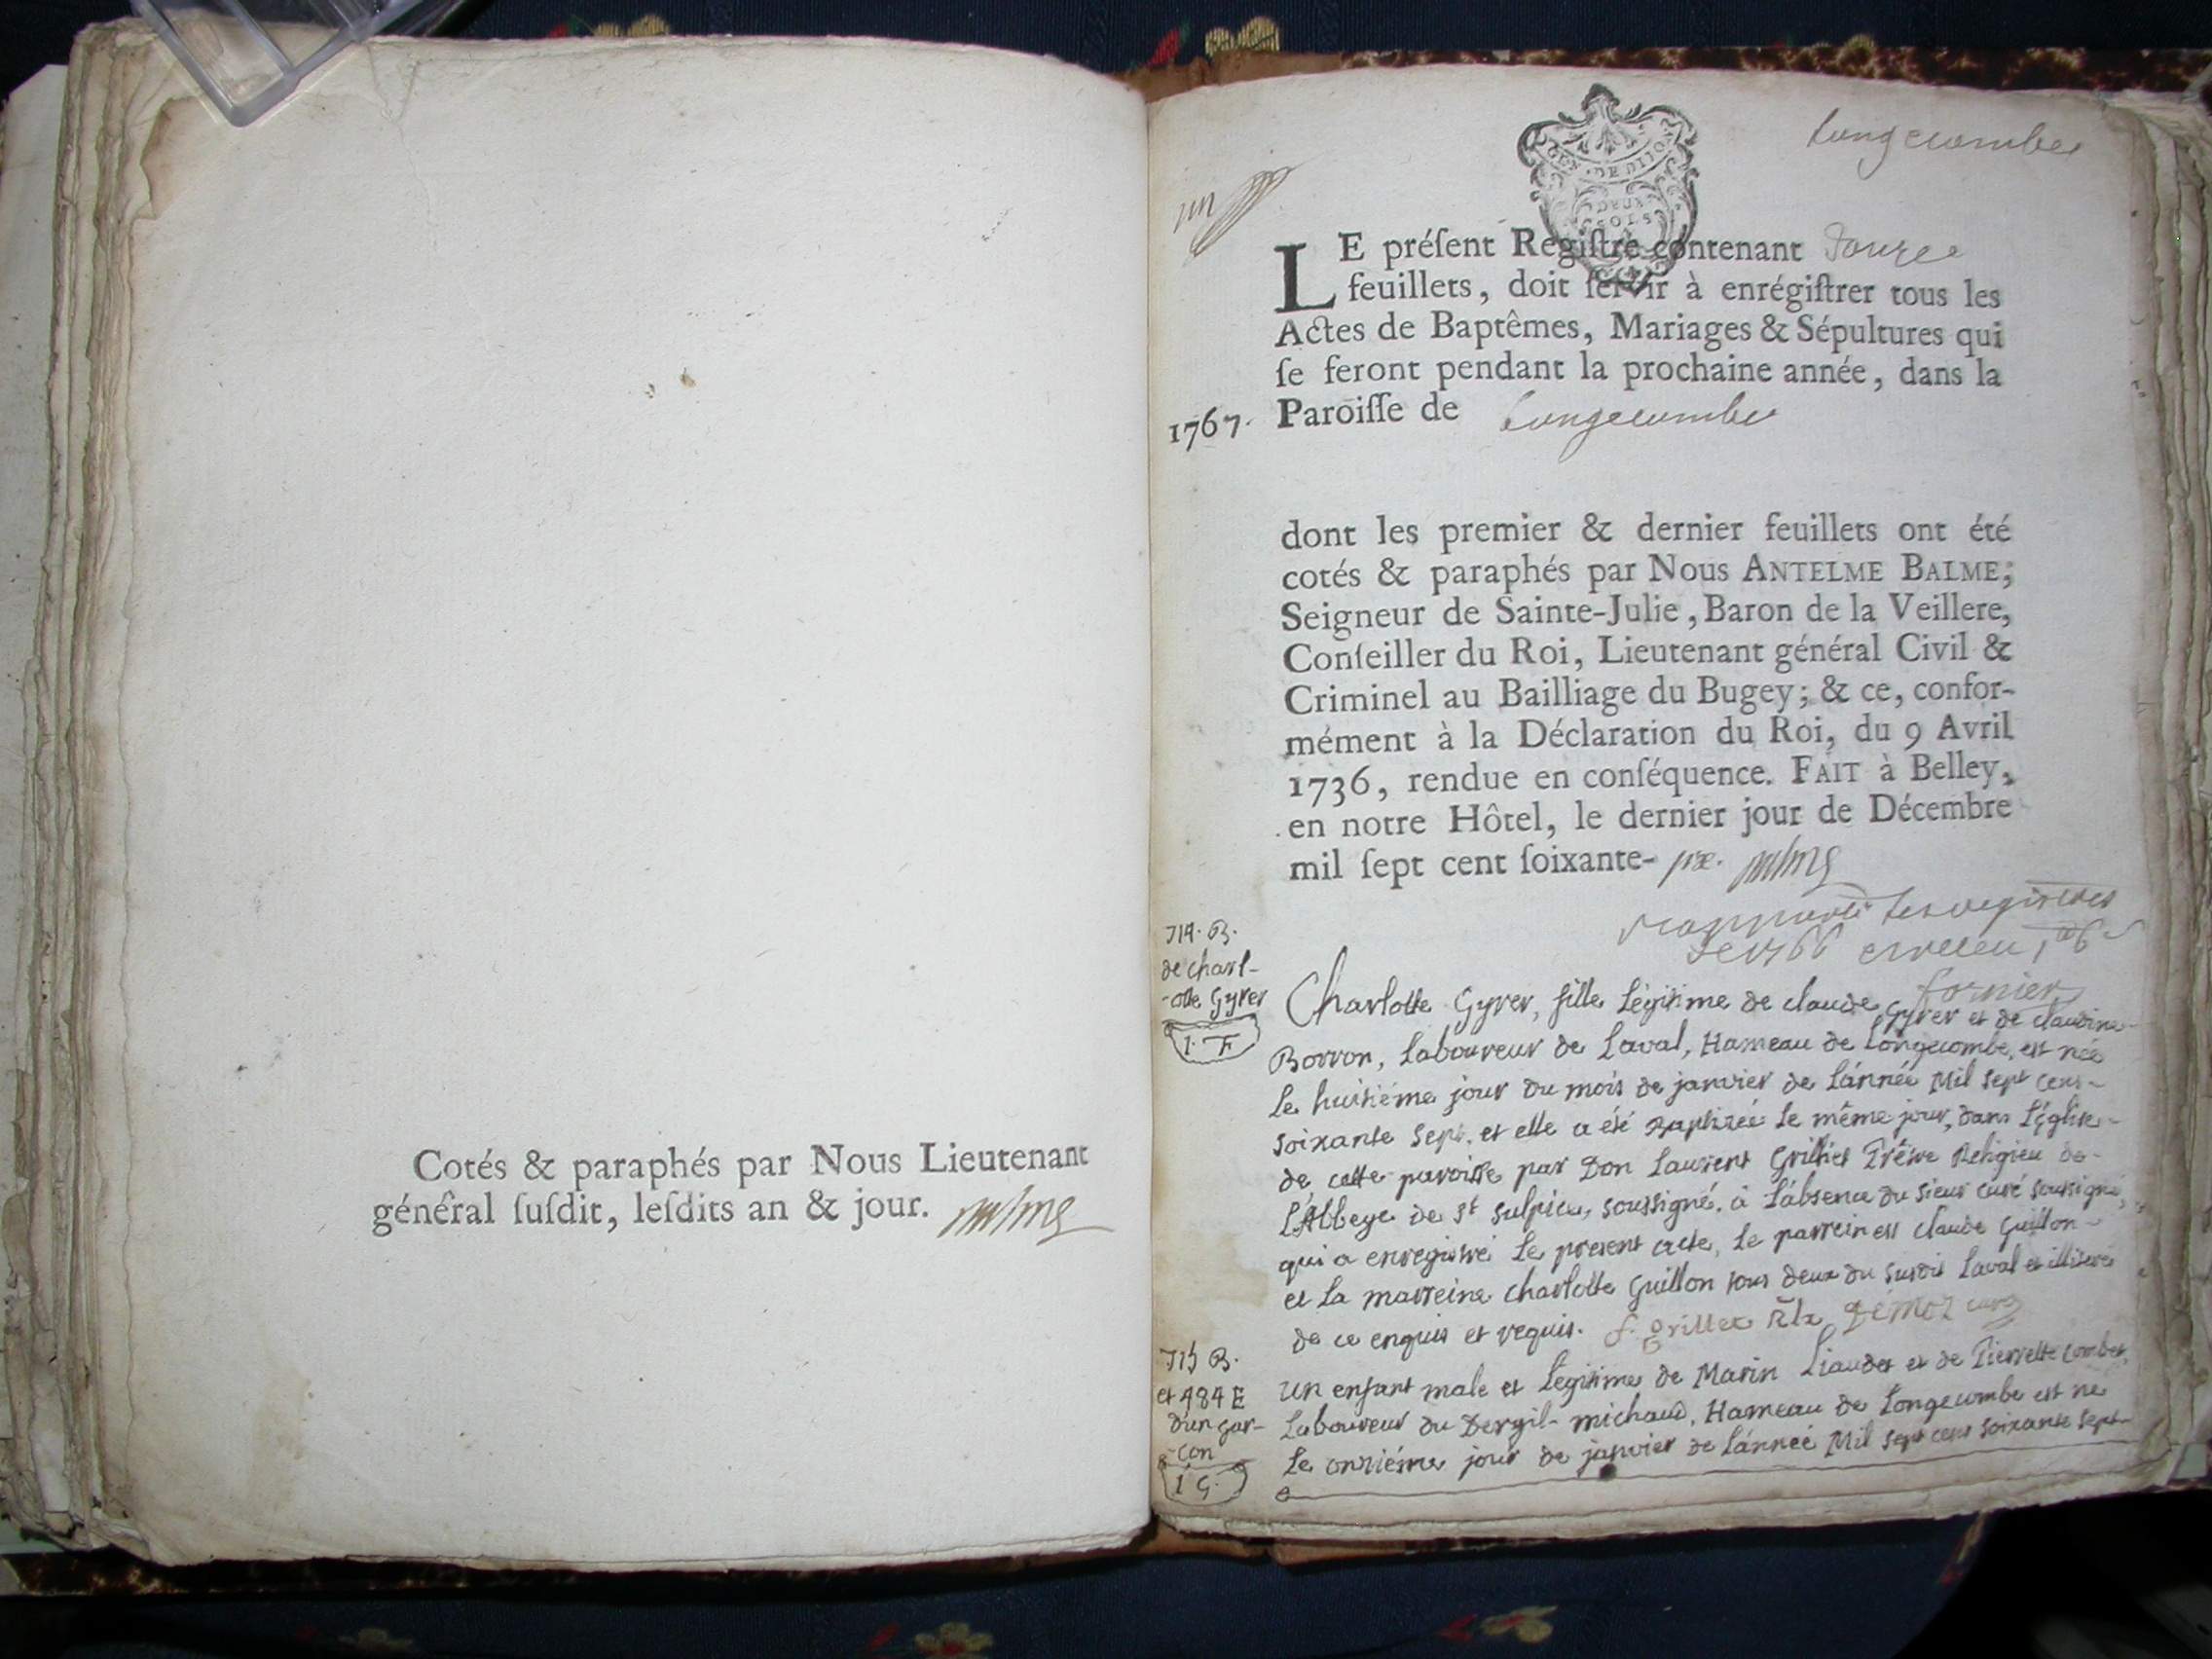 Cotés & paraphés par Nous Lieutenant
général ſuſdit, leſdits an & jour.
GEN · DE DIJON
DEUX
SOLS
Longecombe
LE préſent Regiſtre contenant Douze
feuillets, doit ſervir à enrégiſtrer tous les
Actes de Baptêmes, Mariages & Sépultures qui
ſe feront pendant la prochaine année, dans la
1767. Paroiſſe de Longecombe
dont les premier & dernier feuillets ont été
cotés & paraphés par Nous ANTELME BALME,
Seigneur de Sainte-Julie, Baron de la Veillere,
Conſeiller du Roi, Lieutenant général Civil &
Criminel au Bailliage du Bugey; & ce, confor-
mément à la Déclaration du Roi, du 9 Avril
1736, rendue en conſéquence. FAIT à Belley,
en notre Hôtel, le dernier jour de Décembre
mil ſept cent ſoixante- six.
les registres
de 1766
fornier
714. B.
de charl-
-otte Gyrer
1. F
Charlotte Gyrer, fille Légitime de claude Gyrer et de claudine
Borron, Laboureur de Laval, Hameau de Longecombe, est née
le huitiéme jour du mois de janvier de L'année Mil sept cens-
soixante sept. et elle a été Baptizée le même jour, dans L'église-
de cette paroisse par Don Laurent Grillet Prêtre Religieu de-
L'Abbeye de St Sulpice, soussigné, à L'absence du sieur curé soussigné,
qui a enregistré Le present acte, Le parrein est claude Guillon-
et La marreine charlotte Guillon tous deux du susdit Laval et illiterés
de ce enquis et requis. f. Grillet Démoz curé
715 B.
et 484 E
d'un gar-
-çon
1 G.
un enfant male et Légitime de Marin Liaudet et de Pierrette combet,
Laboureur du Dergil-michaud, Hameau de Longecombe est né
Le onziéme jour de janvier de L'année Mil sept cens soixante sept-